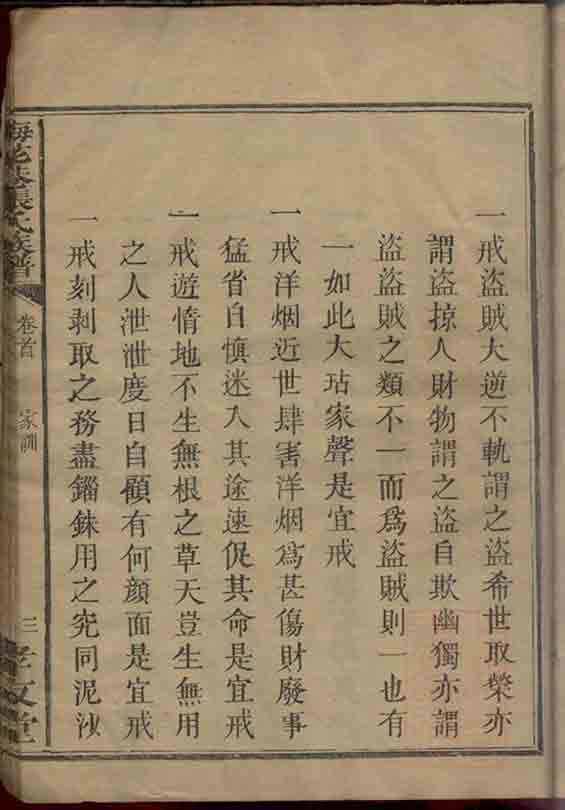 一戒盜賊大逆不軌謂之盜希世取榮亦
謂盜掠人財物謂之盜自欺幽獨亦謂
盜盜賊之類不一而爲盜賊則一也有
一如此大玷家聲是宜戒
一戒洋烟近世肆害洋烟爲甚傷財廢事
猛省自愼迷入其途速促其命是宜戒
一戒遊惰地不生無根之草天豈生無用
之人泄泄度日自顧有何顏面是宜戒
一戒刻剥取之務盡錙銖用之究同泥沙
梅花巷張氏族譜
卷首
家訓
三
孝友堂